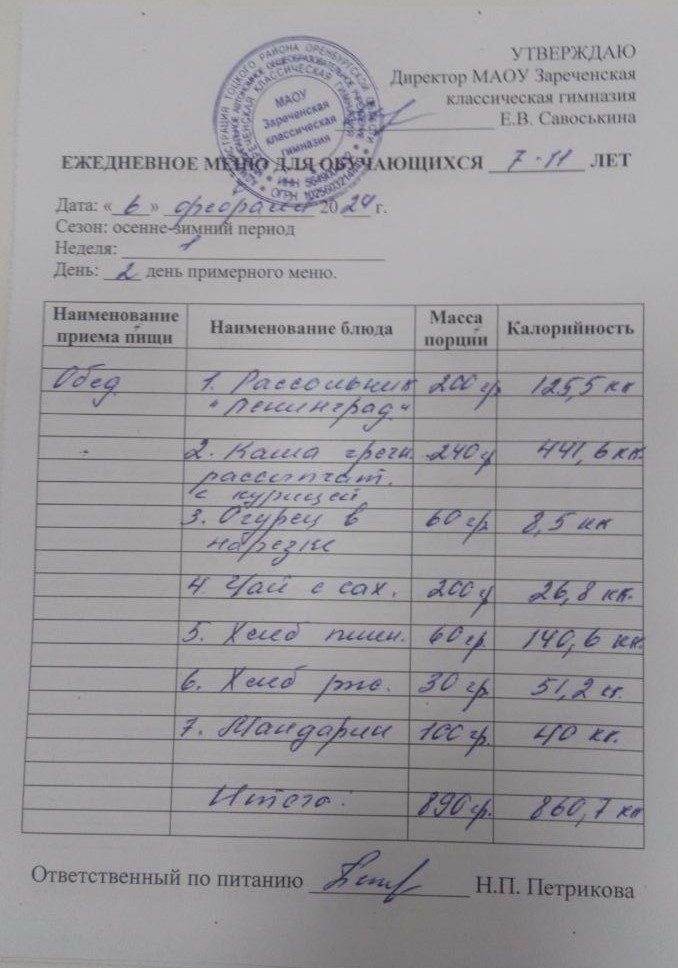 УТВЕРЖДАЮ
Директор МАОУ Зареченская
классическая гимназия
Е.В. Савоськина
МАОУ
Зареченская
классическая
гимназия
ЕЖЕДНЕВНОЕ МЕНЮ ДЛЯ ОБУЧАЮЩИХСЯ 7-11 ЛЕТ
Дата: «6» февраля 2024 г.
Сезон: осенне-зимний период
Неделя: 1
День: 2 день примерного меню.
Наименование приема пищи Наименование блюда Масса порции Калорийность
Обед 1. Рассольник 200 гр 125,5 кк
"Ленинград"
2. Каша гречн. 240 г 441,6 кк.
рассыпчат.
с курицей
3. Огурец в 60 гр 8,5 кк
нарезке
4. Чай с сах. 200 г 26,8 кк.
5. Хлеб пшен. 60 гр. 140,6 кк.
6. Хлеб рж. 30 гр 51,2 к.
7. Мандарин 100 гр. 40 кк.
Итого: 890 гр. 860,7 кк
Ответственный по питанию Н.П. Петрикова